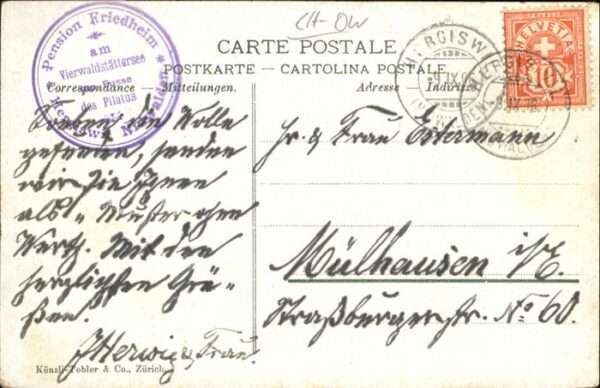 CH-OW
Pension Friedheim
am
Vierwaldstättersee
am Fusse
des Pilatus
Hergiswyl Nidwalden
CARTE POSTALE
POSTKARTE – CARTOLINA POSTALE
Correspondance – Mitteilungen.
Adresse – Indirizzo
HERGISWYL
HELVETIA
10
Soeben die Wolle
gefunden, senden
wir Sie Ihnen
als Muster ohne
Wert. Mit den
herzlichsten Grü-
ßen.
JHerwig & Frau.
Hr. & Frau Estermann
Mülhausen i/E.
Straßburgerstr. No 60.
Künzli-Tobler & Co., Zürich.